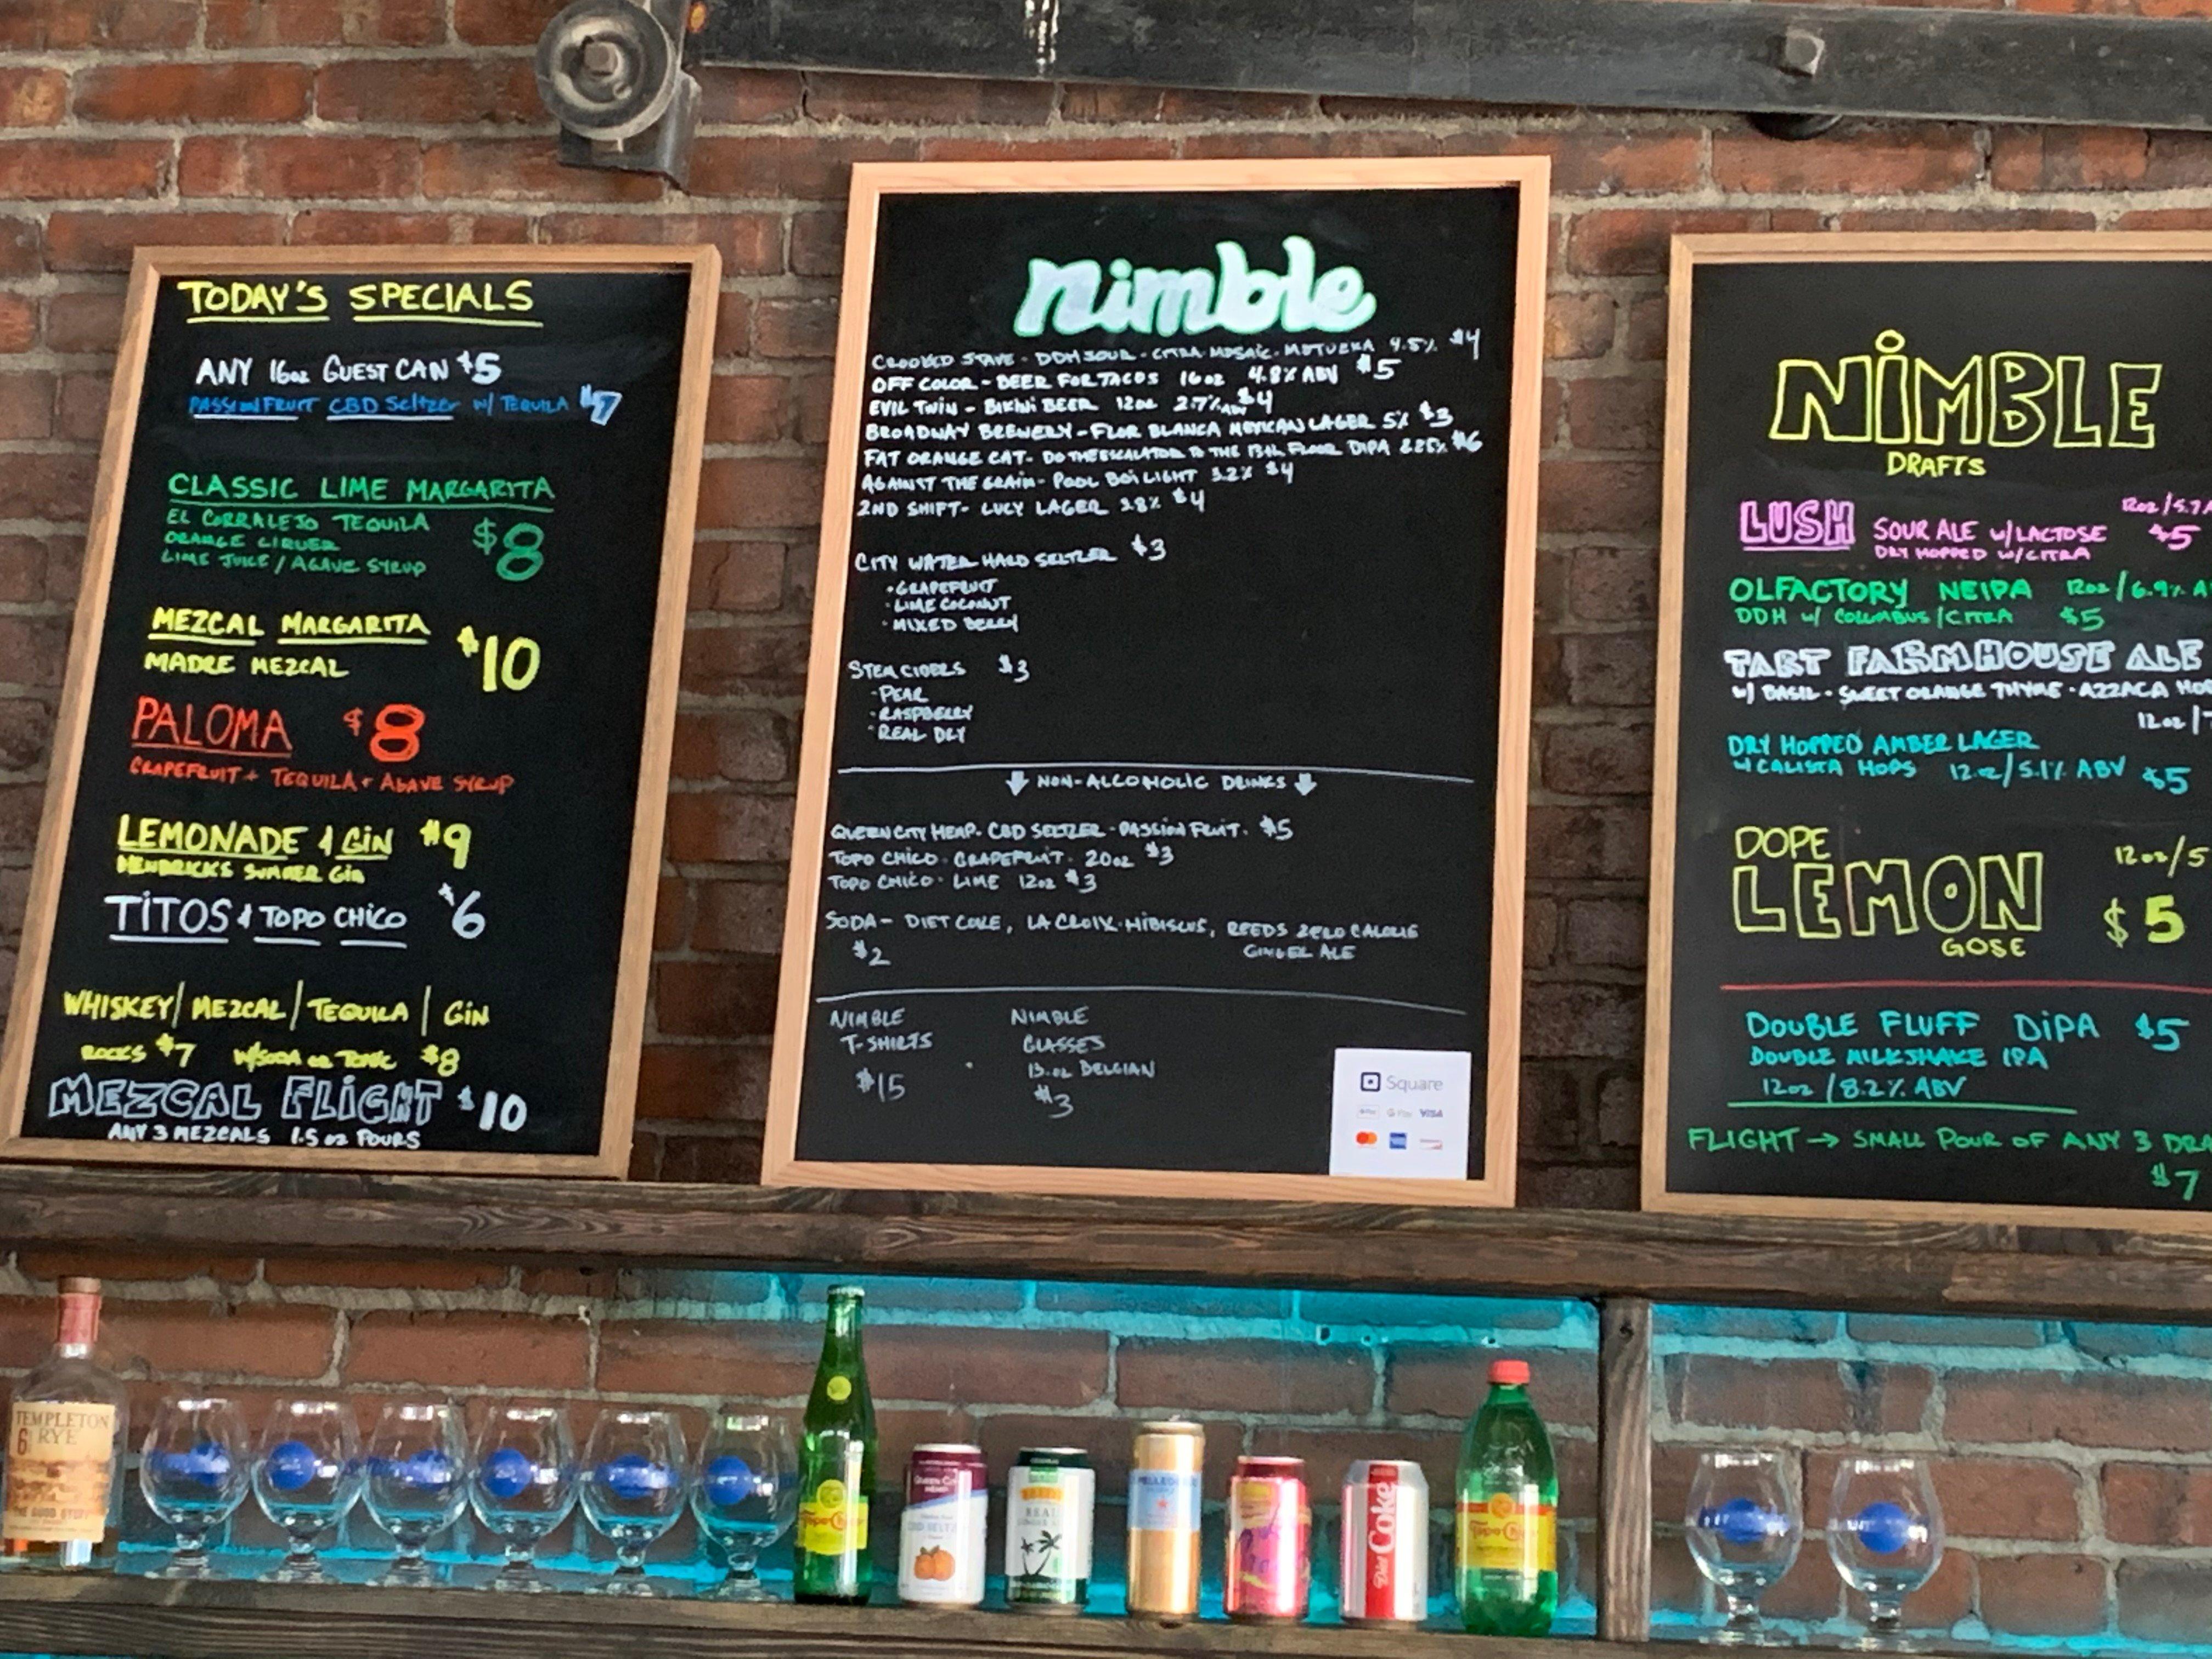 TODAY'S SPECIALS
ANY 16oz GUEST CAN $5
PASSIONFRUIT CBD Seltzer W/ TEQUILA $7
CLASSIC LIME MARGARITA
EL CORRALEJO TEQUILA
ORANGE LIQUER
LIME JUICE / AGAVE SYRUP
$8
MEZCAL MARGARITA
MADRE MEZCAL
$10
PALOMA $8
GRAPEFRUIT + TEQUILA + AGAVE SYRUP
LEMONADE & GIN $9
HENDRICKS SUMMER GIN
TITOS & TOPO CHICO $6
WHISKEY / MEZCAL / TEQUILA | GIN
ROCKS $7 W/SODA OR TONIC $8
MEZCAL FLIGHT $10
ANY 3 MEZCALS 1.5 oz POURS
nimble
CROOKED STAVE - DDH SOUR - CITRA - MOSAIC - MOTUEKA 4.5% $4
OFF COLOR - BEER FOR TACOS 16oz 4.8% ABV $5
EVIL TWIN - BIKINI BEER 12oz 2.7% ABV $4
BROADWAY BREWERY - FLOR BLANCA MEXICAN LAGER 5% $3
FAT ORANGE CAT - DO THE ESCALATOR TO THE 13th FLOOR DIPA $6
AGAINST THE GRAIN - POOL BOI LIGHT 3.2% $4
2ND SHIFT - LUCY LAGER 3.8% $4
CITY WATER HARD SELTZER $3
• GRAPEFRUIT
• LIME COCONUT
• MIXED BERRY
STEM CIDERS $3
• PEAR
• RASPBERRY
• REAL DRY
NON-ALCOHOLIC DRINKS
QUEEN CITY HEMP - CBD SELTZER - PASSION FRUIT - $5
TOPO CHICO - GRAPEFRUIT - 20oz $3
TOPO CHICO - LIME 12oz $3
SODA - DIET COKE, LA CROIX - HIBISCUS, REEDS ZERO CALORIE
$2 GINGER ALE
NIMBLE
T-SHIRTS
$15
NIMBLE
GLASSES
13.oz BELGIAN
$3
Square
VISA
NIMBLE
DRAFTS
LUSH SOUR ALE W/LACTOSE
DRY HOPPED W/CITRA
$5
OLFACTORY NEIPA 12oz / 6.9%
DDH W/ COLUMBUS / CITRA $5
TART FARMHOUSE ALE
W/ BASIL - SWEET ORANGE THYME - AZZACA
12oz /
DRY HOPPED AMBER LAGER
W/ CALISTA HOPS 12oz / 5.1% ABV $5
DOPE
LEMON
GOSE
12oz / 5
$5
DOUBLE FLUFF DIPA $5
DOUBLE MILKSHAKE IPA
12oz / 8.2% ABV
FLIGHT → SMALL POUR OF ANY 3
$7
TEMPLETON
RYE
6
THE GOOD STUFF
Topo Chico
QUEEN CITY
HEMP
CBD SELTZER
REAL
Diet Coke
Topo Chico